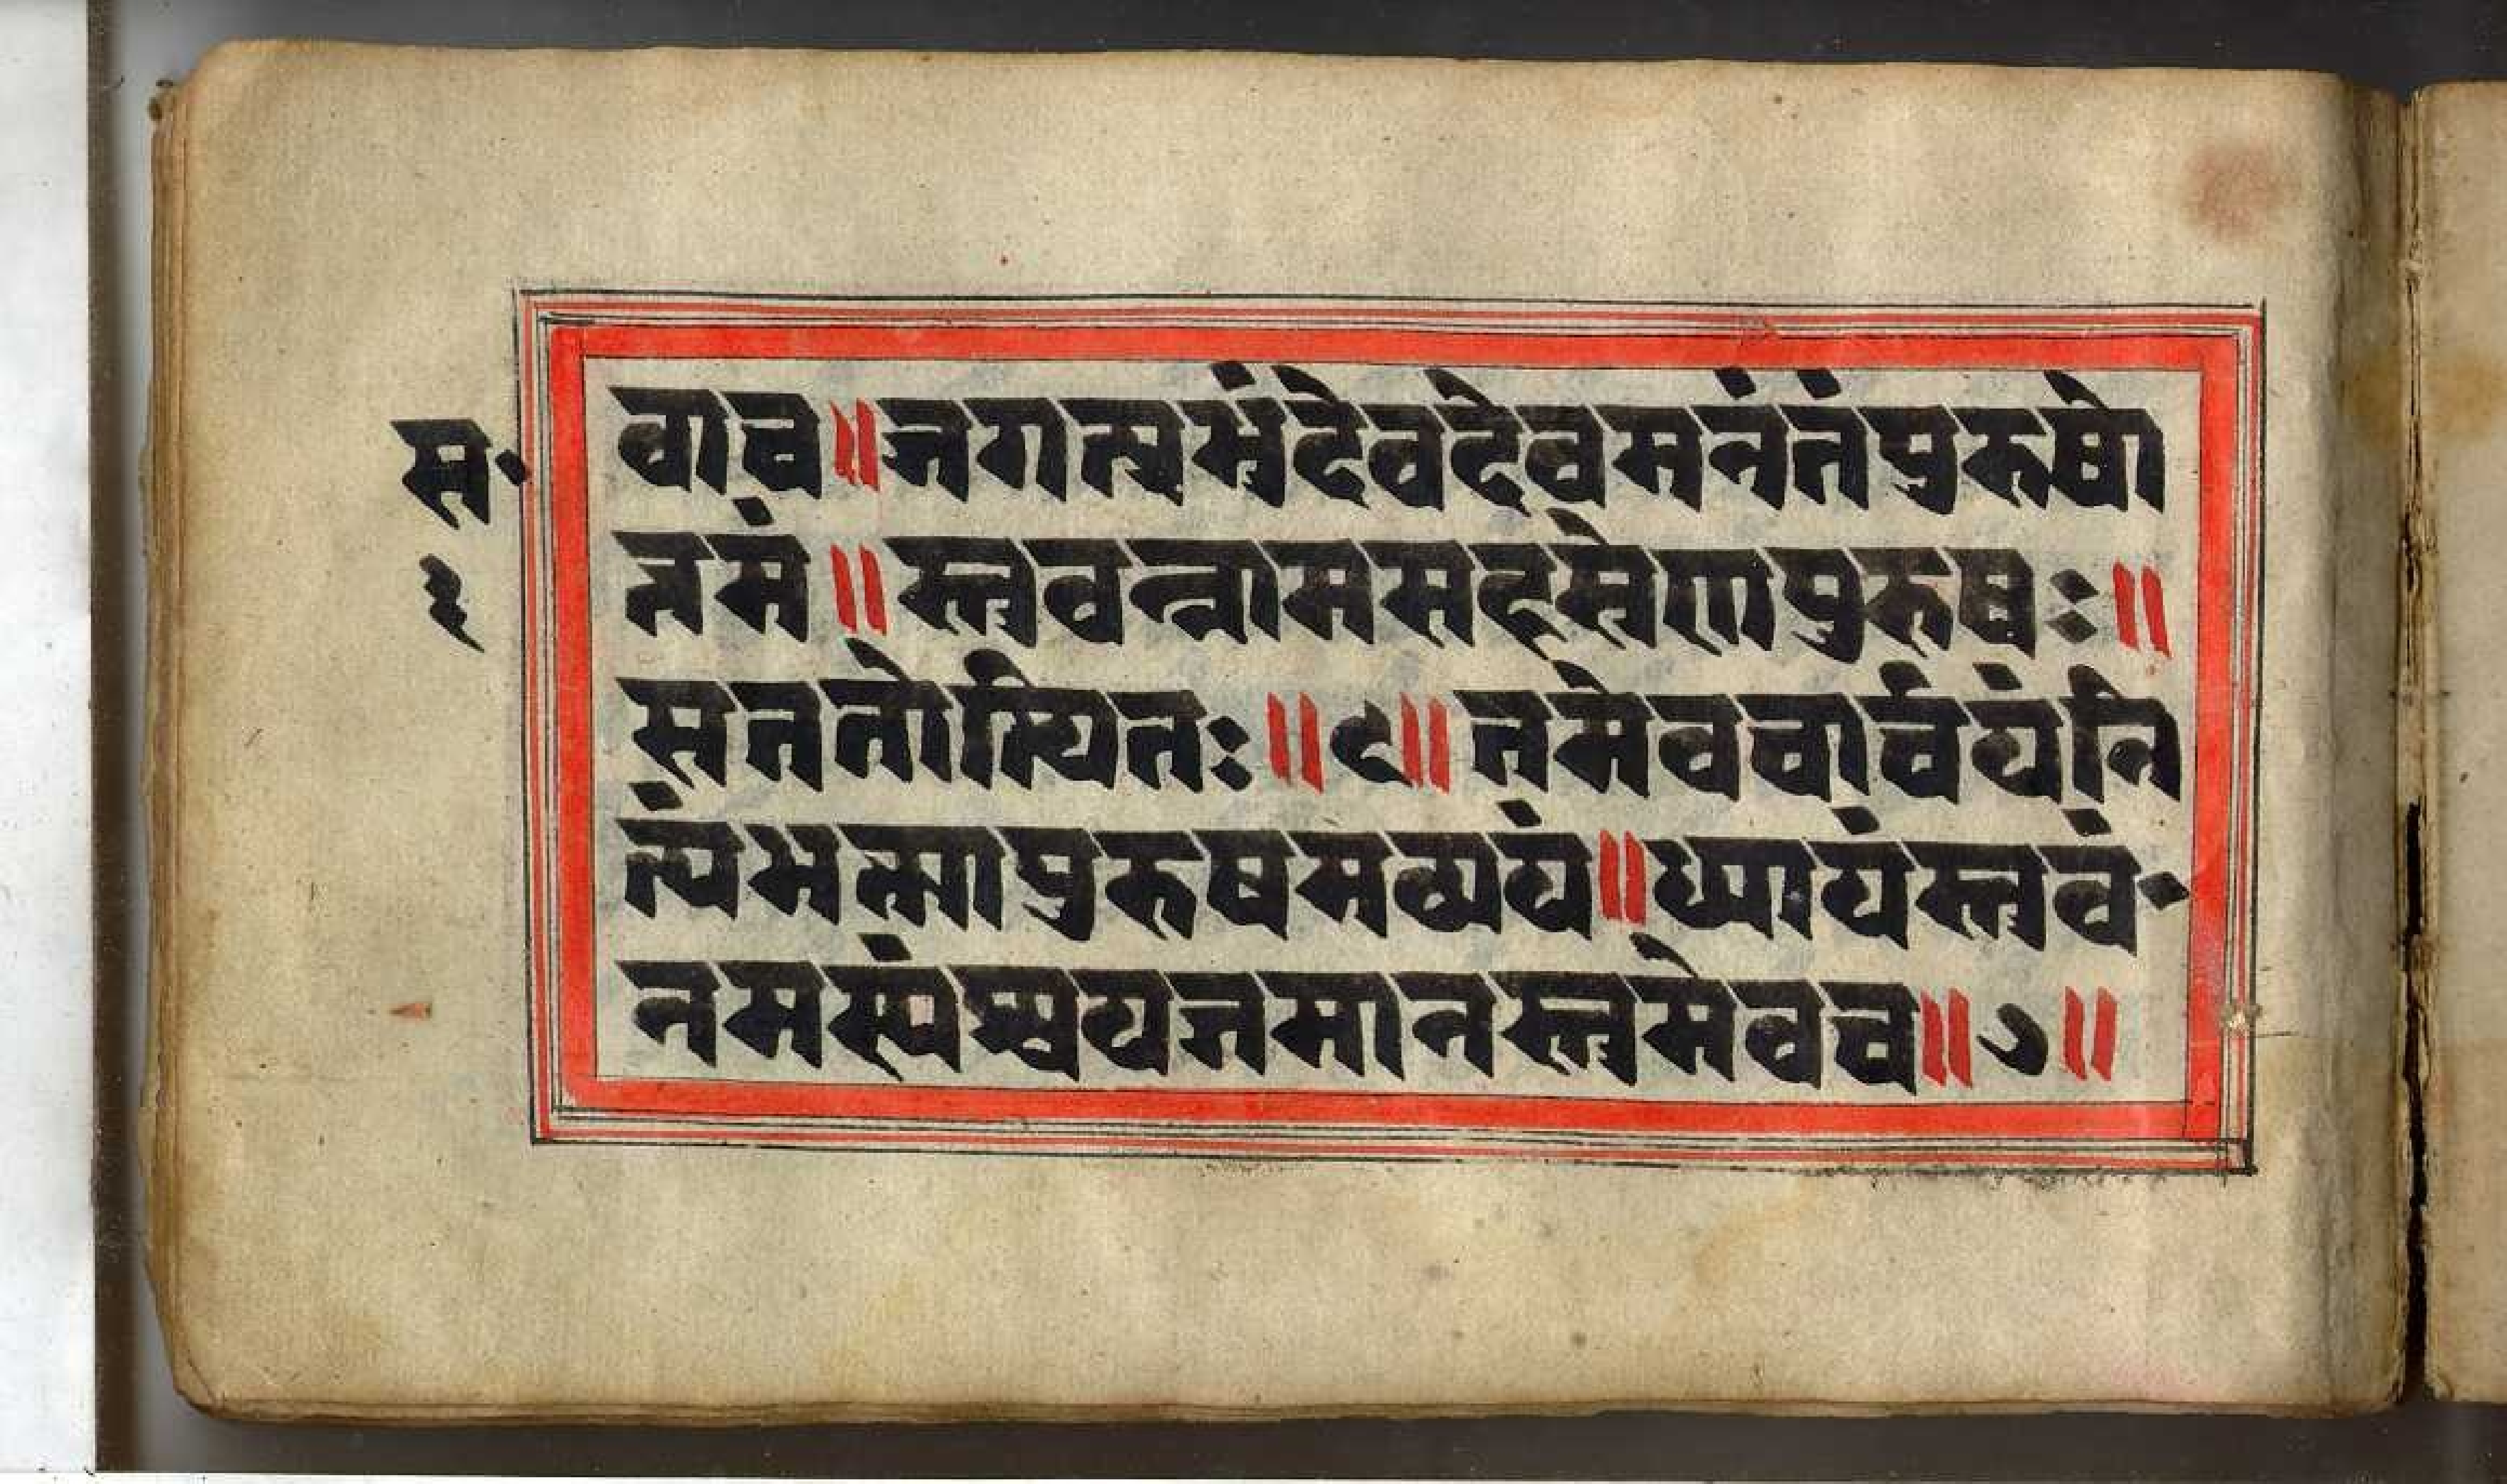 स॰
२
वाच॥जगत्प्रभंदेवदेवमनंतंपुरुषो
त्तमं॥स्तुवन्नामसहस्रेणपुरुषः॥
सततोत्थितः॥६॥तमेवचार्चयंनि
त्यंभक्त्यापुरुषमव्ययं॥ध्यायंस्तुवं॰
नमस्यंश्चयजमानस्तमेवच॥७॥